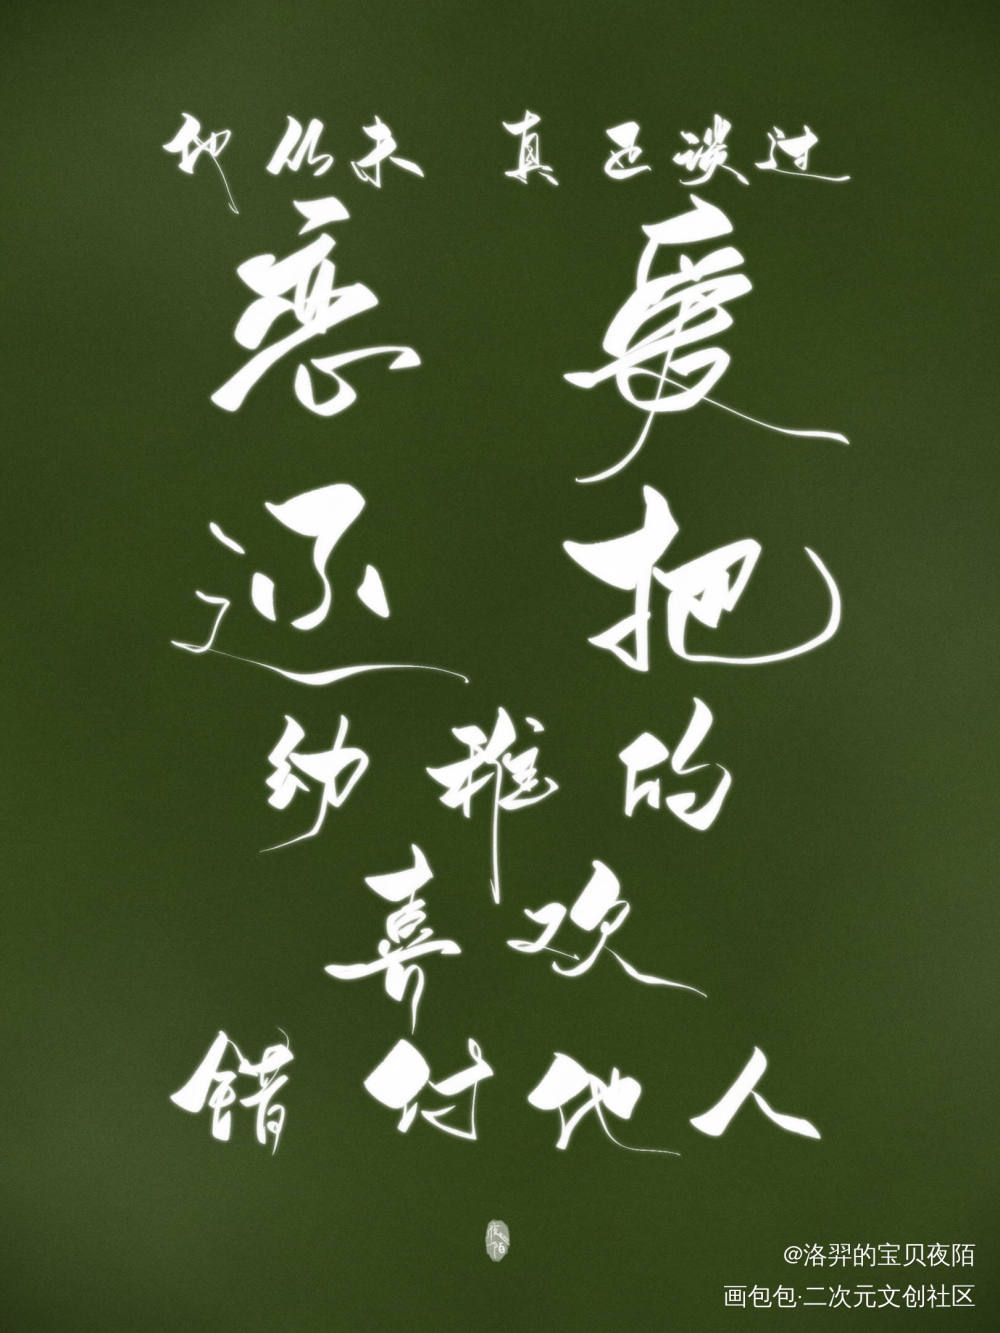 他从未 真正谈过
恋爱
还把
幼稚的
喜欢
错付他人
夜陌
@洛羿的宝贝夜陌
画包包·二次元文创社区